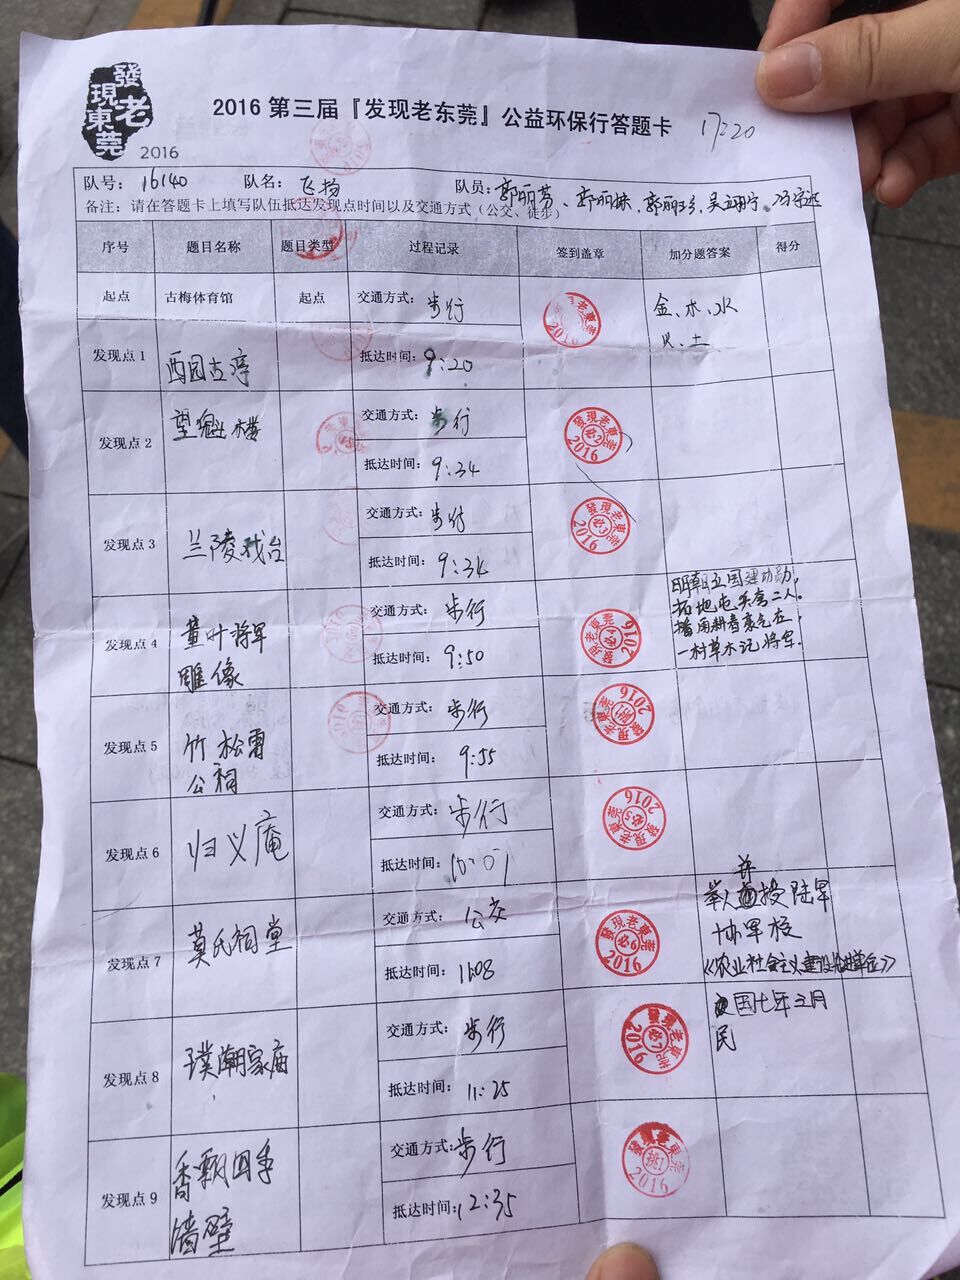 發現老東莞
2016
2016 第三届『发现老东莞』公益环保行答题卡 17:20
队号: 16140 队名: 飞扬 队员: 郭丽芳、郭丽妹、
备注: 请在答题卡上填写队伍抵达发现点时间以及交通方式(公交、徒步)
序号 题目名称 题目类型 过程记录 签到盖章 加分题答案 得分
起点 古梅体育馆 起点 交通方式: 步行 金、木、水
火、土
发现点 1 西园古亭 抵达时间: 9:20
發現老東莞 2016
发现点 2 望魁楼 交通方式: 步行
抵达时间: 9:34
發現老東莞 必2 2016
发现点 3 兰陵戏台 交通方式: 步行
抵达时间: 9:34
發現老東莞 必3 2016
发现点 4 董叶将军
雕像 交通方式: 步行
抵达时间: 9:50
發現老東莞 必4 2016
明朝立国建功勋,
拓地屯兵 二人.
豪气在,
一村草木记将军.
发现点 5 竹松雷
公祠 交通方式: 步行
抵达时间: 9:55
發現老東莞 2016
发现点 6 归义庵 交通方式: 步行
抵达时间: 10:07
發現老東莞 必5 2016
发现点 7 莫氏祠堂 交通方式: 公交
抵达时间: 11:08
發現老東莞 必6 2016
举人 并授陆军
协军校
《农业社会主义建设先进单位》
发现点 8 璞潮家庙 交通方式: 步行
抵达时间: 11:25
發現老東莞 必7 2016
国七年三月
民
发现点 9 香飘四季
墙壁 交通方式: 步行
抵达时间: 12:35
發現老東莞 挑1 2016